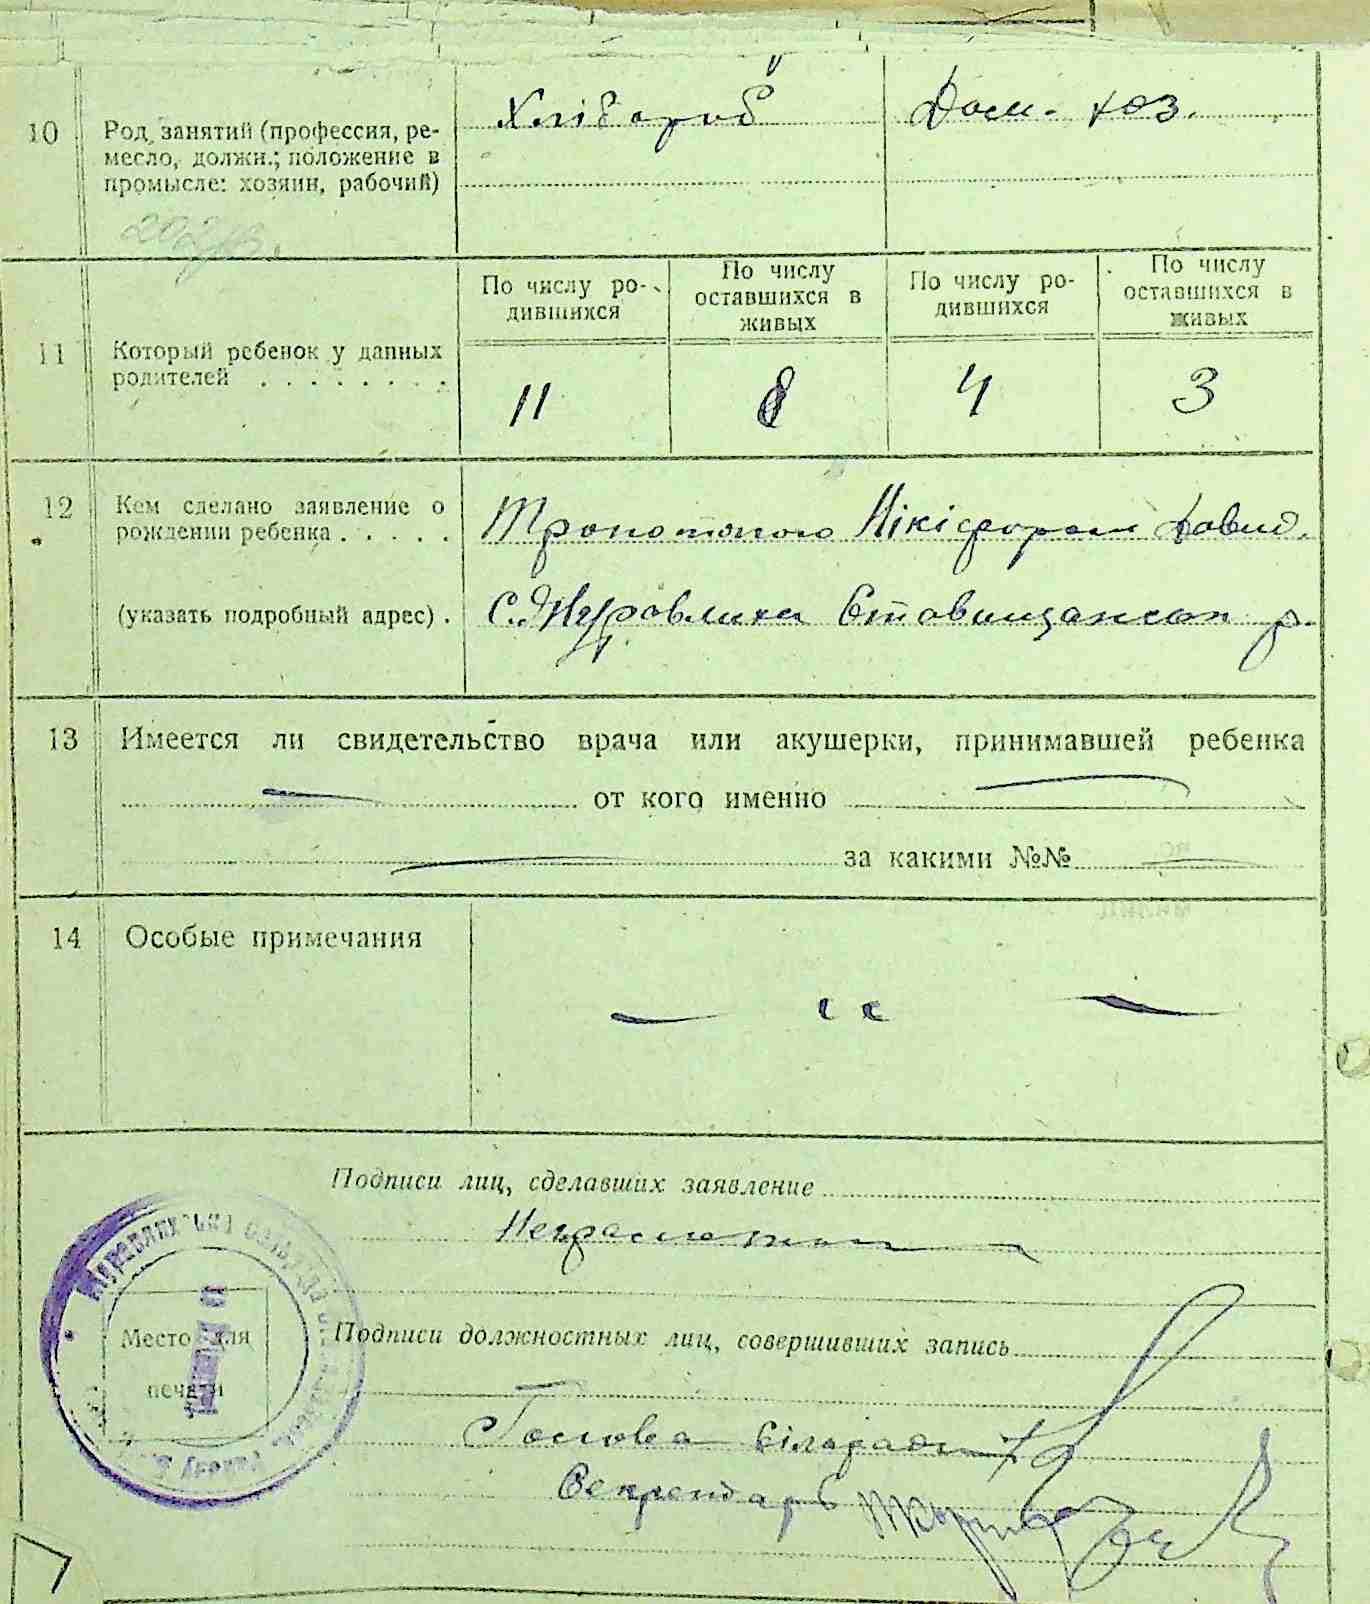 Хлібороб Дом. хоз.
10 Род занятий (профессия, ре-
месло, должн.; положение в
промысле: хозяин, рабочий)
По числу ро- По числу По числу ро- По числу
дившихся оставшихся в дившихся оставшихся в
живых живых
11 Который ребенок у данных
родителей . . . . . . . .
11 8 4 3
12 Кем сделано заявление о
рождении ребенка . . . . .
Нікіфором Давид.
(указать подробный адрес) . С. Журавлиха Ставищанськ р.
13 Имеется ли свидетельство врача или акушерки, принимавшей ребенка
— от кого именно —
— за какими №№ —
14 Особые примечания
— „ —
Подписи лиц, сделавших заявление
Неграмотн
Подписи должностных лиц, совершивших запись
Место для
печати
Голова сільради
Секретарь